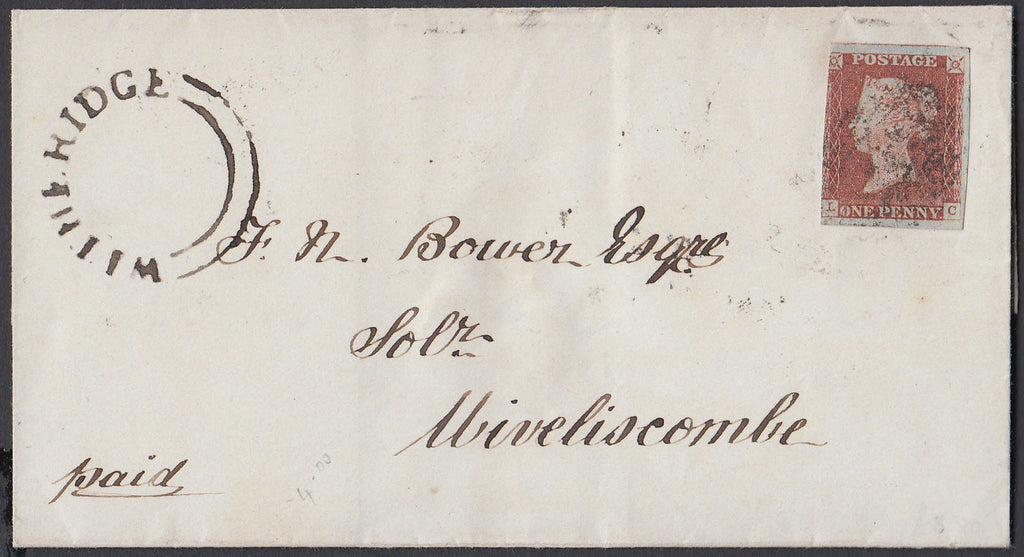 WITHERIDGE
POSTAGE
ONE PENNY
L C
F. N. Bower Esqre
Solr
Wiveliscombe
paid